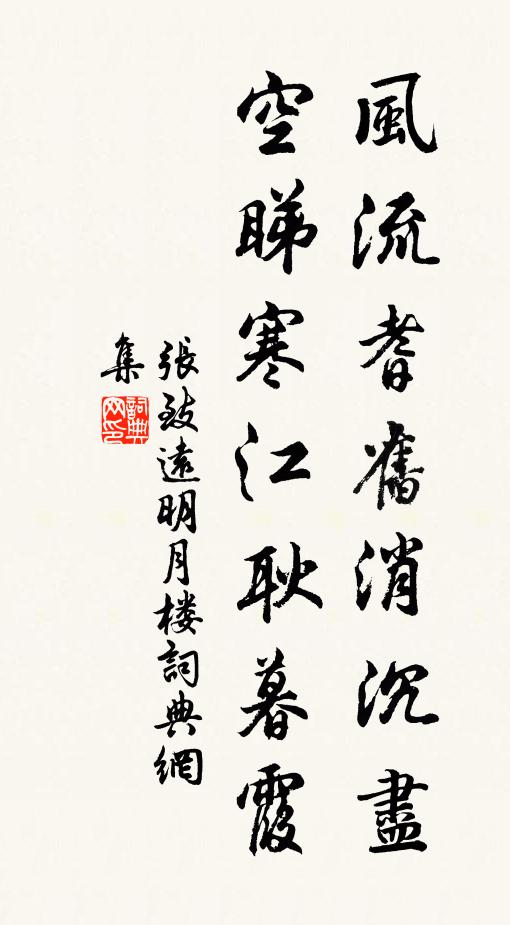 風流耆舊消沉盡
空睇寒江耿暮霞
張致遠明月楼詞典網
集
詞典
网印